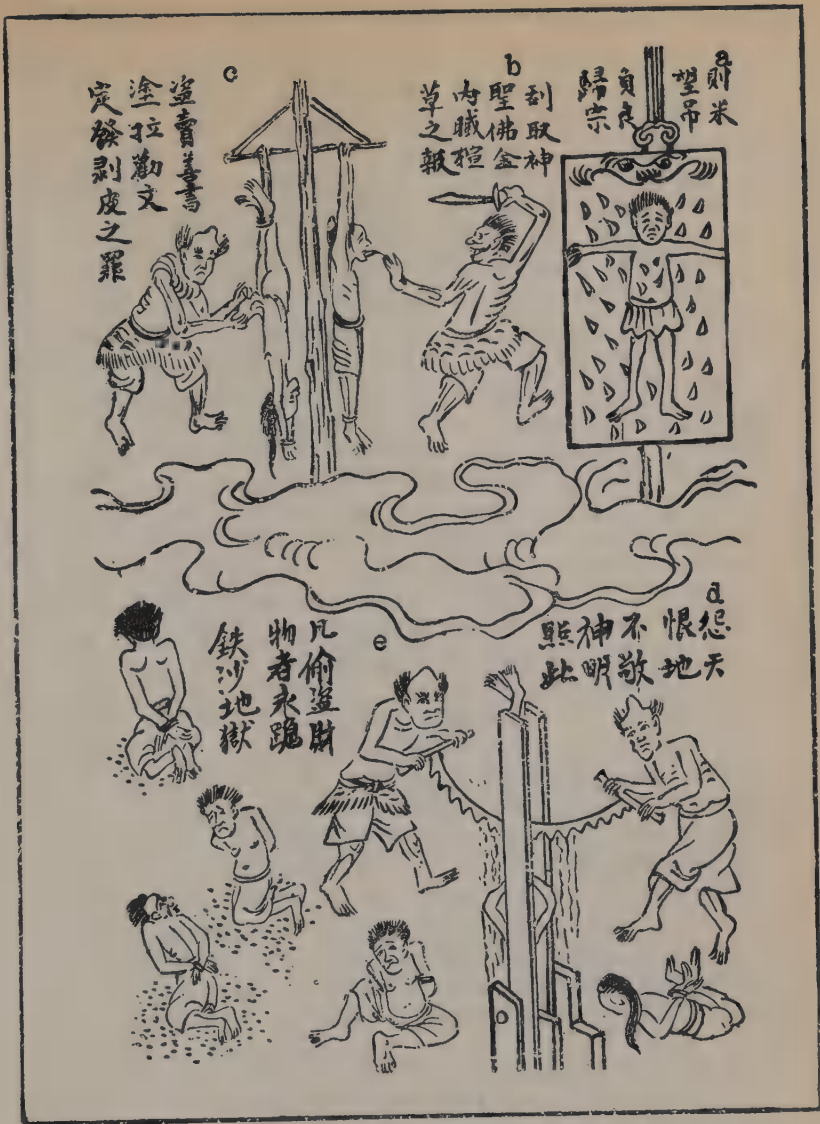 a
則米
望吊
負良
歸宗
b
刮取神
聖佛金
內臟楦
草之報
c
盜賣善書
塗拉勸文
定發剥皮之罪
d
怨天
恨地
不敬
神明
照此
e
凡偷盜財
物者永跪
鉄沙地獄